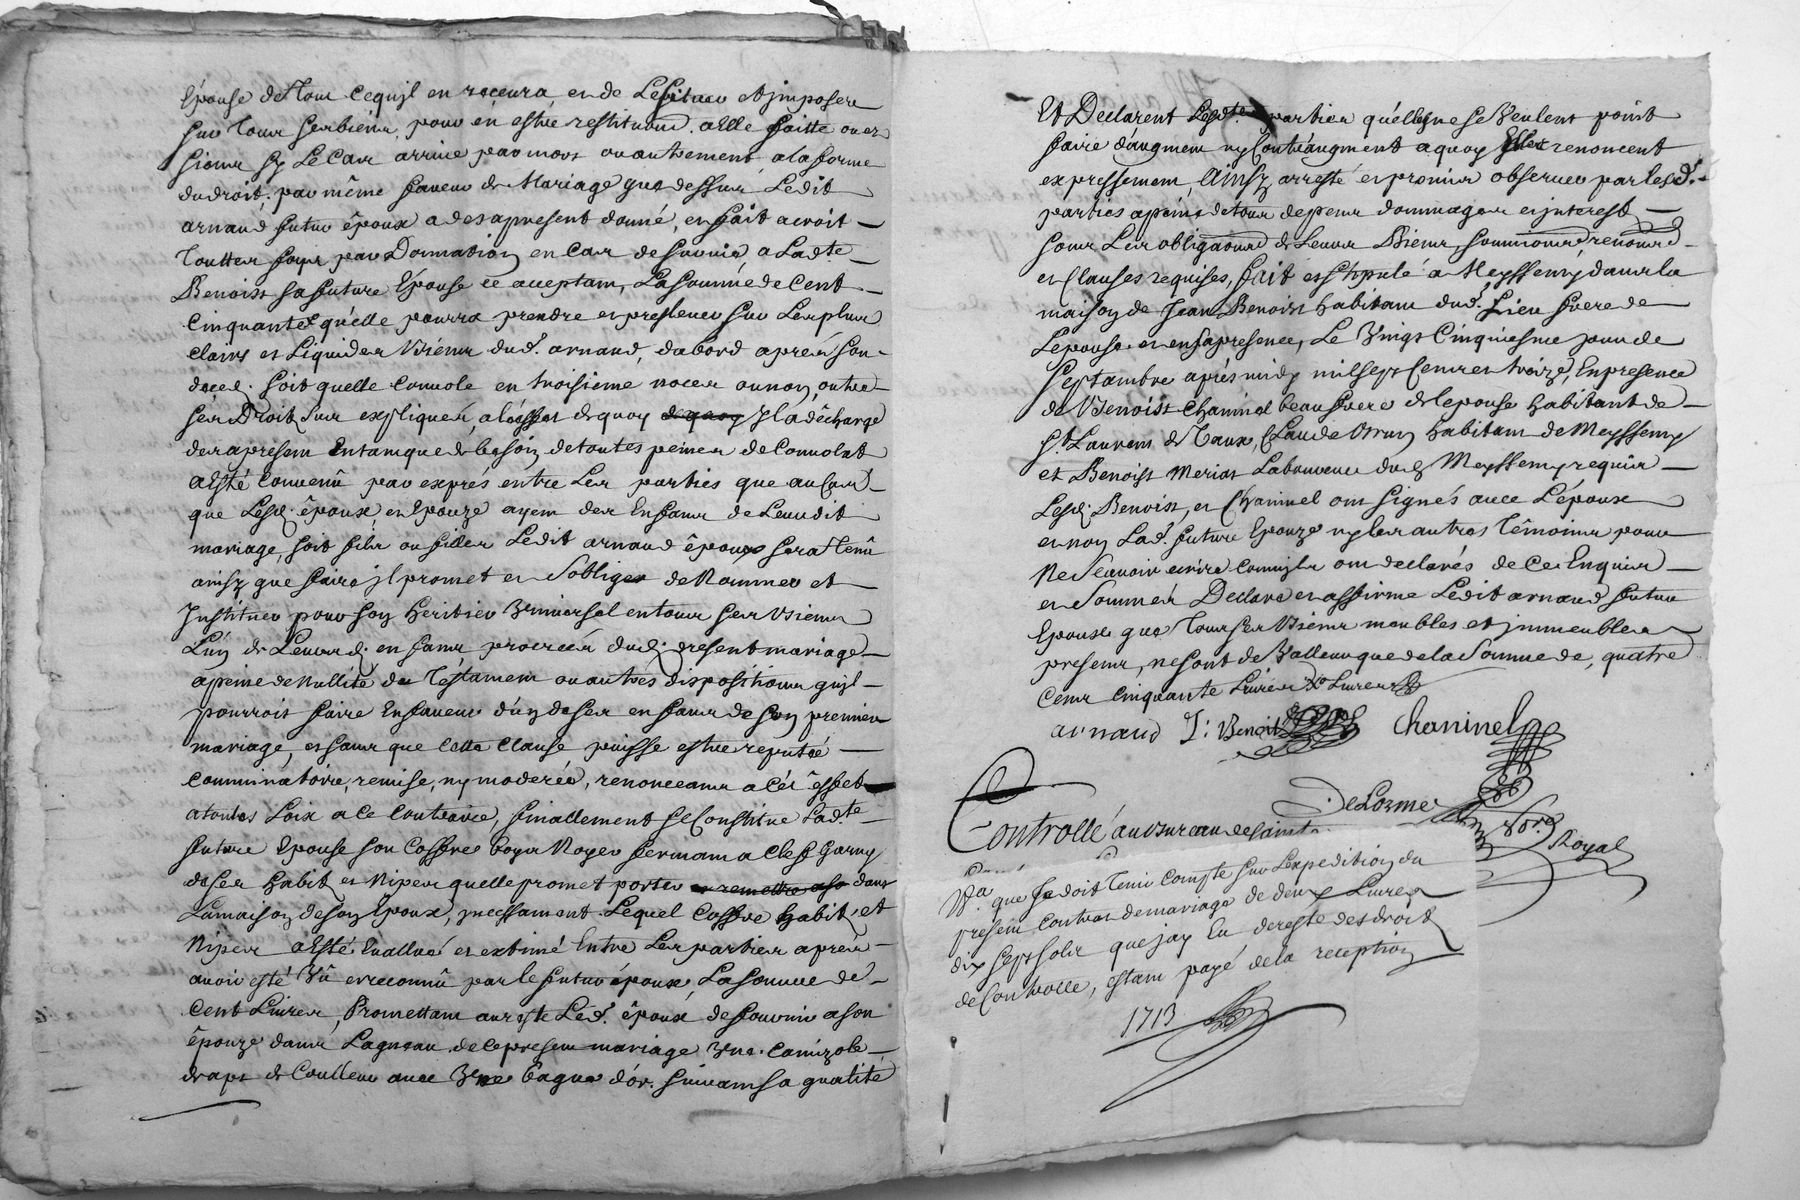 Epouse de tout cequjl en recevra et de Lesituer et jmposer
sur tous ses biens, pour en estre restitution a Elle faitte ou es
siens sy Le Cas arrive par mort ou autrement a la forme
du droit. par même faveur de Mariage que dessus, Ledit
arnaud futur époux a des apresent donné, en fait acroit
touttes foys par Donnation en Cas de survie, a Ladte
Benoist sa future Epouse ce aceptant, La somme de Cent
Cinquante£ qu'elle pourra prendre et preslever sur Les plus
clairs et Liquides Biens dud. arnaud, dabord aprés son
decez. soit quelle Convole en troisieme noces ou non, outre
ses Droits sus expliqués, a l'effet de quoy de quoy Jl a décharge
des apresent Entant que de besoin de toutes peines de Convolat
a Esté Convenû par exprés entre Les parties que au Cas
que Lesd. époux et Epouze ayent des Enfans de Leurdit
mariage, soit fils ou filles Ledit arnaud époux sera tenû
ainsy que faire jl promet et s'obliger de Nommer et
Jnstituer pour son heritier Vniversel en tous ses Biens
L'un de Leursd. enfans procreés dud. present mariage
apeine de Nullité de Testament ou autres dispositions qujl
pourroit faire En faveur d'un de ses enfans de son premier
mariage, et sans que Cette Clause puisse estre reputée
comminatoire, remise, ny moderée, renonceant a Cét éffet
a toutes Loix a ce Contraire, finallement se Constitue Ladte
future Epouse son Coffre boys Noyer fermant a Clef Garny
de ses habits et Nipes quelle promet porter et remettre dans
La maison de son Epoux, jncessament. Lequel Coffre habits et
Nipes a Esté Evallué et extimé Entre Les parties aprés
avoir esté Vû et reconnû par le futur époux, La somme de
Cent Livres, Promettant au reste Led. époux de fournir a son
épouze dans Lagneau de ce present mariage Vne Camizole
draps de Coulleur avec Vne bague d'or. suivant sa qualité
Et Declarent Lesdtes parties qu'elles ne se Veulent point
faire d'augment ny Contraugment a quoy Elles renoncent
expressement, Ainsy arresté et promis observer par lesd.
parties apeine de tous depens dommages et jnterest
sous Les obligaons de Leurs Biens soumions renonons
et Clauses requises, fait et stipulé a Meyssemy dans la
maison de Jean Benoist habitant dud. Lieu frere de
Lepouse et en sa presence, Le Vingt Cinquiesme jour de
Septambre aprés midy mil sept Cens et treize, En presence
de Benoist Chaninel beaufrere de lepouse habitant de
St. Laurent de Vaux, Claude habitant de Meyssemy
et Benoist Merias Laboureur dud Meyssemy requis
Lesd. Benoist, et Chaninel ont signés avec L'époux
et non Lad. future Epouze ny les autres témoins pour
Ne sçavoir écrire comm'jls ont declarés de Ce Enquis
et Sommés Declare et affirme Ledit arnaud futur
Epoux que tous ses Biens meubles et jmmeubles
presens, ne sont de Valleur que de la Somme de, quatre
Cens Cinquante Livres
arnaud J: Benoit Chaninel
DeLorme
Nore
Royal
Controllé au Bureau de saint
que Je doit tenir Compte sur L'expedition du
present Contrat de mariage de deux Livres
dix sept sols que jay Eu de reste des droit
de Controlle, estant payé de la reception
1713